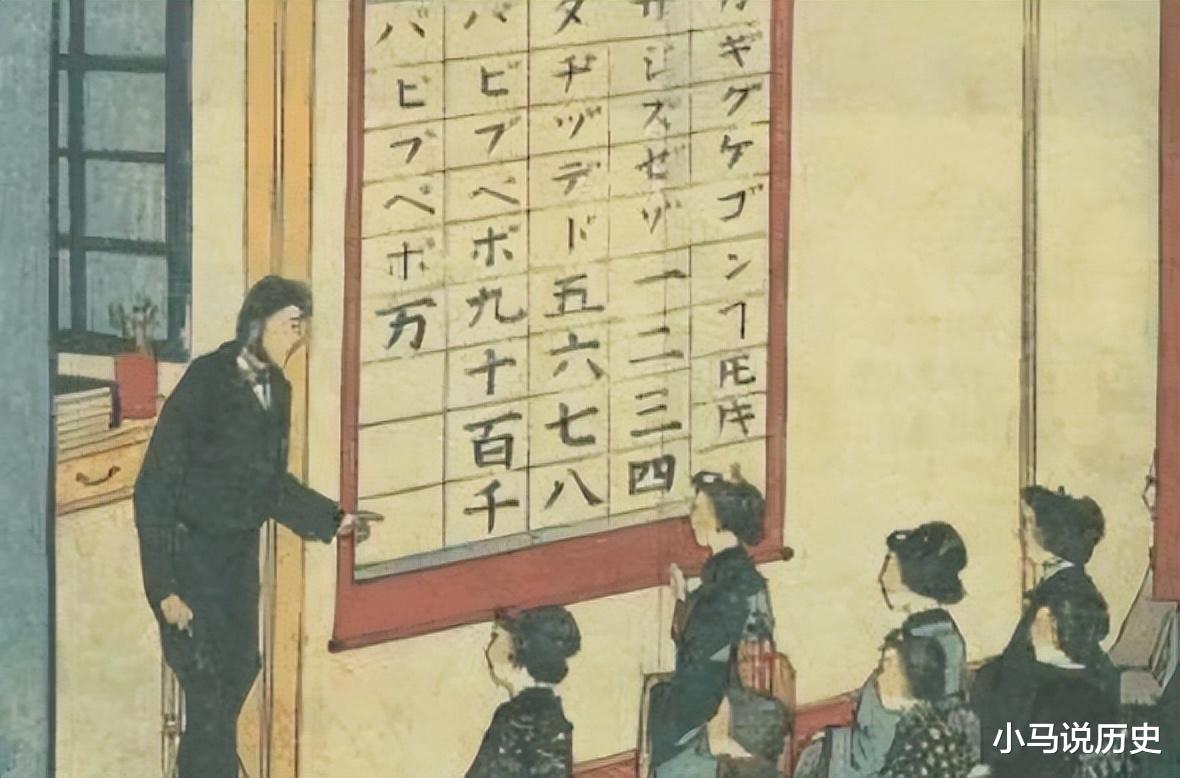 ギグゲゴンヿ𪜈
ジズゼゾ一二三四
ダヂヅデド五六七八
バビブベボ九十百千
パピプペポ万
小马说历史